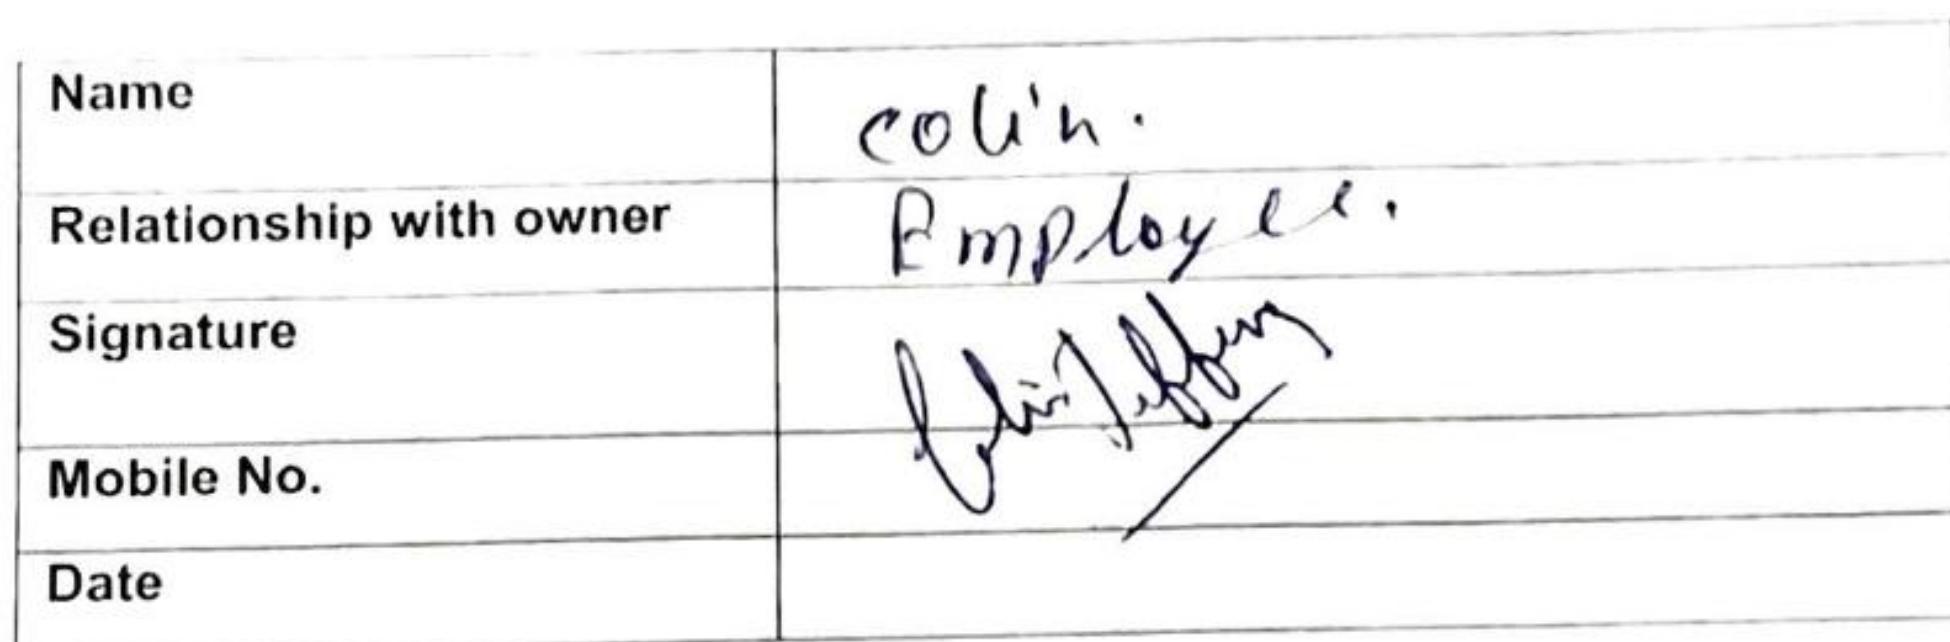 Name colin.
Relationship with owner Employee.
Signature Colin Jeffrey
Mobile No.
Date